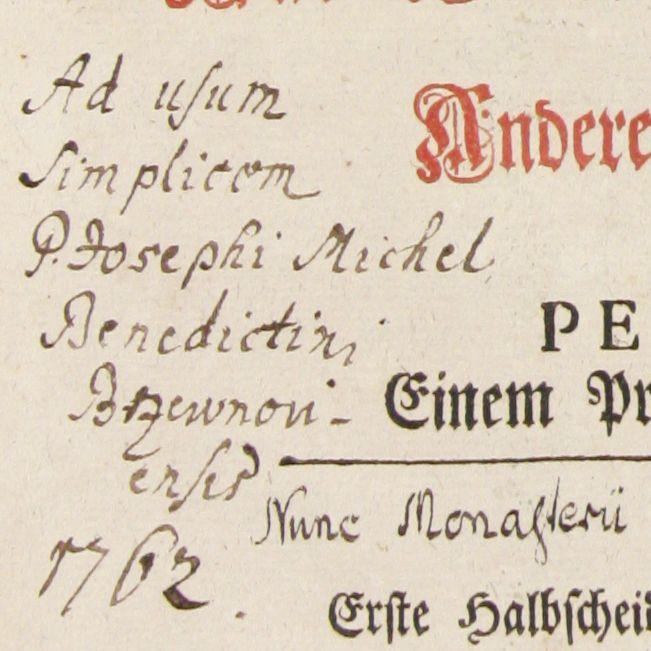 Ad usum
Andere
simplicem
P. Josephi Michel
Benedictini
PE
Brzewnovi-
Einem Pr
ensis
Nunc Monasterii
1762.
Erste Halbscheid